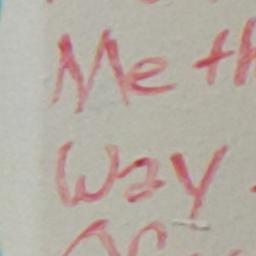 Me th
Way